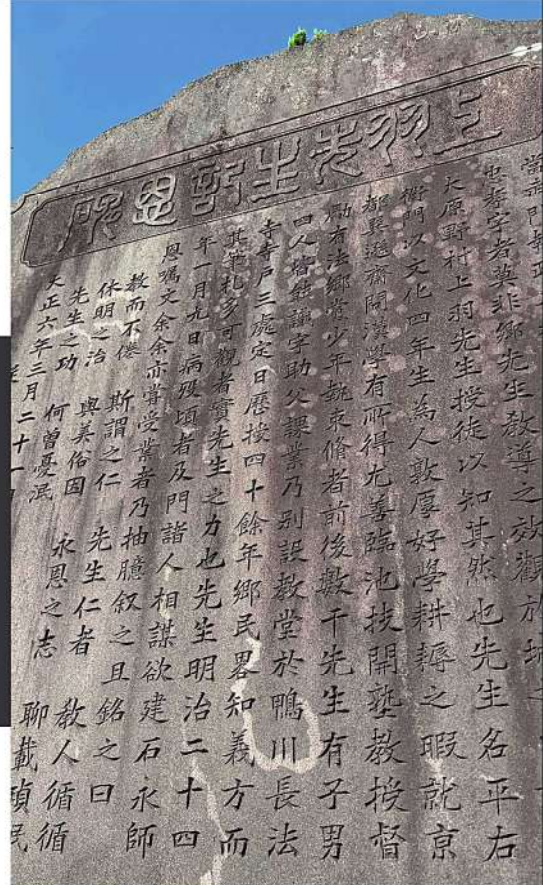 上羽先生記恩碑
忠孝字者莫非鄉先生教導之效觀於
大原野村上羽先生授徒以知其然也先生名平右
衛門以文化四年生為人敦厚好學耕耨之暇就京
都巽遜齋問漢學有所得尤善臨池技開塾教授督
勵有法鄉黨少年執束脩者前後數千先生有子男
四人皆能識字助父課業乃別設教堂於鴨川長法
寺寺戶三處定日歷授四十餘年鄉民畧知義方而
其筆札多可觀者實先生之力也先生明治二十四
年一月九日病歿頃者及門諸人相謀欲建石永師
恩囑文余余亦嘗受業者乃抽臆叙之且銘之曰
教而不倦 斯謂之仁 先生仁者 教人循循
休明之治 與美俗因
先生之功 何曾憂泯 永恩之志 聊載貞珉
大正六年三月二十一日